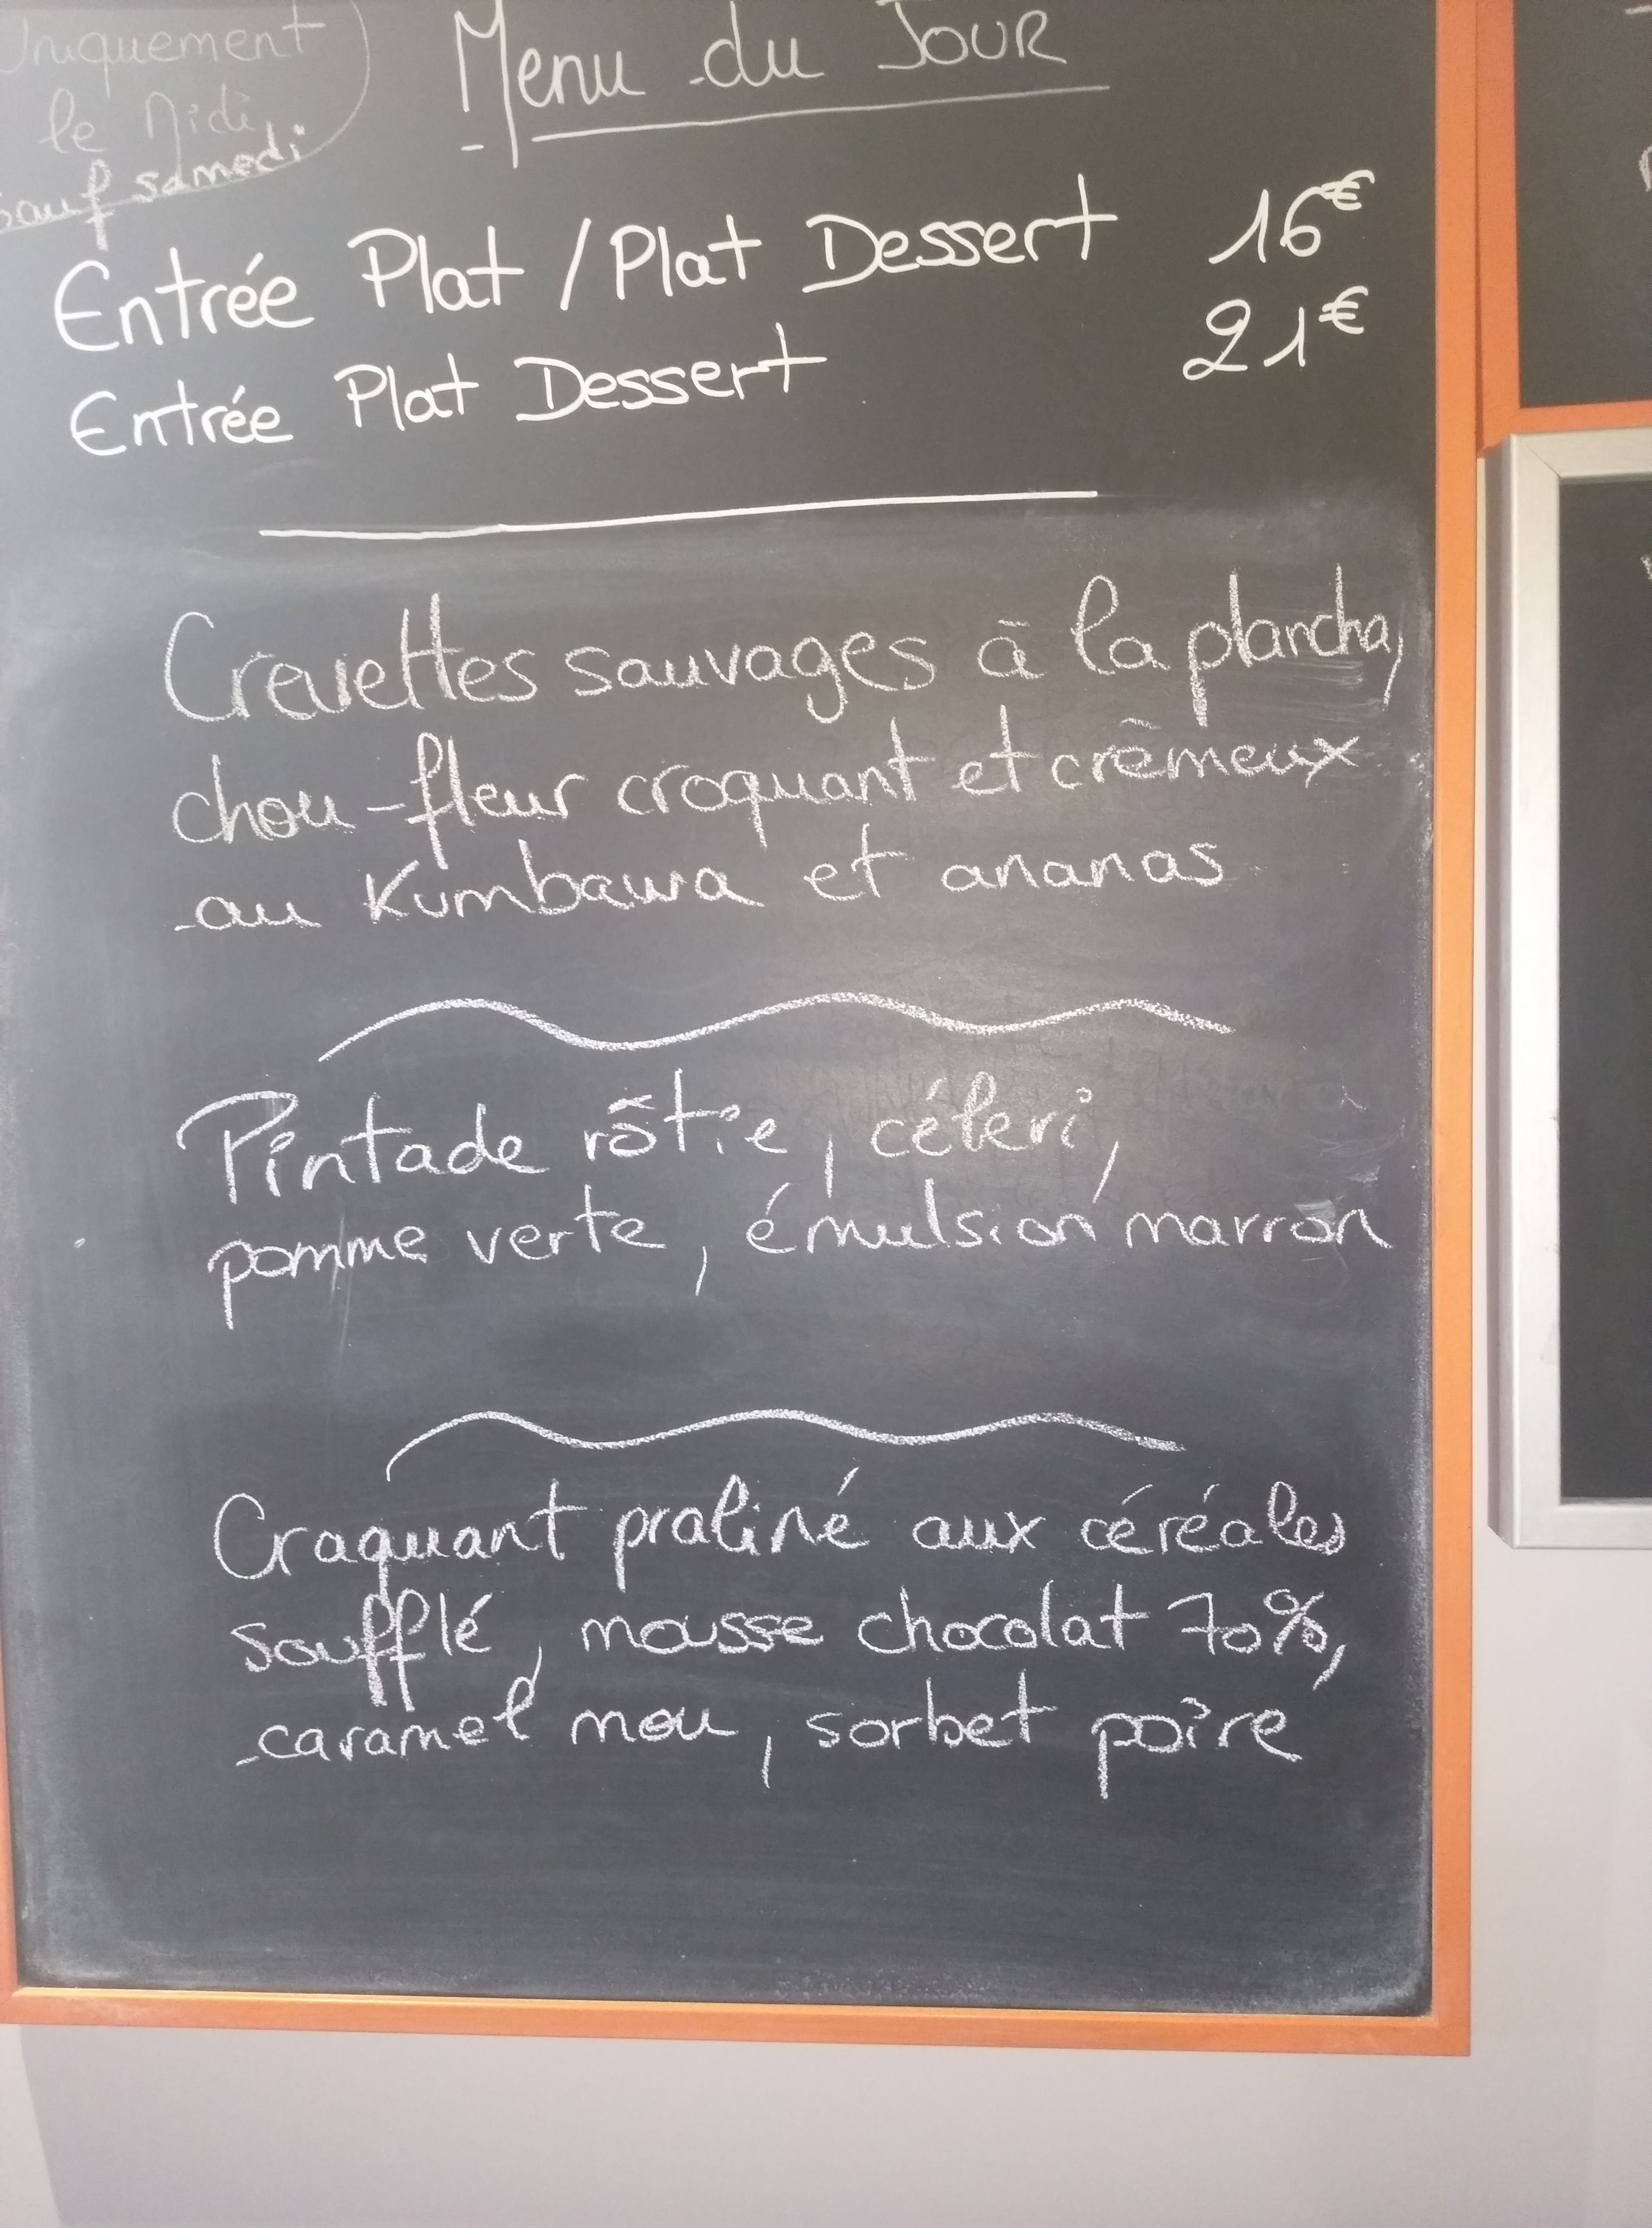 Uniquement
le Midi
sauf samedi
Menu du JOUR
Entrée Plat / Plat Dessert 16€
Entrée Plat Dessert 21€
Crevettes sauvages à la plancha,
chou-fleur croquant et crèmeux
au Kumbawa et ananas
Pintade rôtie, céleri,
pomme verte, émulsion marron
Craquant praliné aux céréales
soufflé, mousse chocolat 70%,
caramel mou, sorbet poire